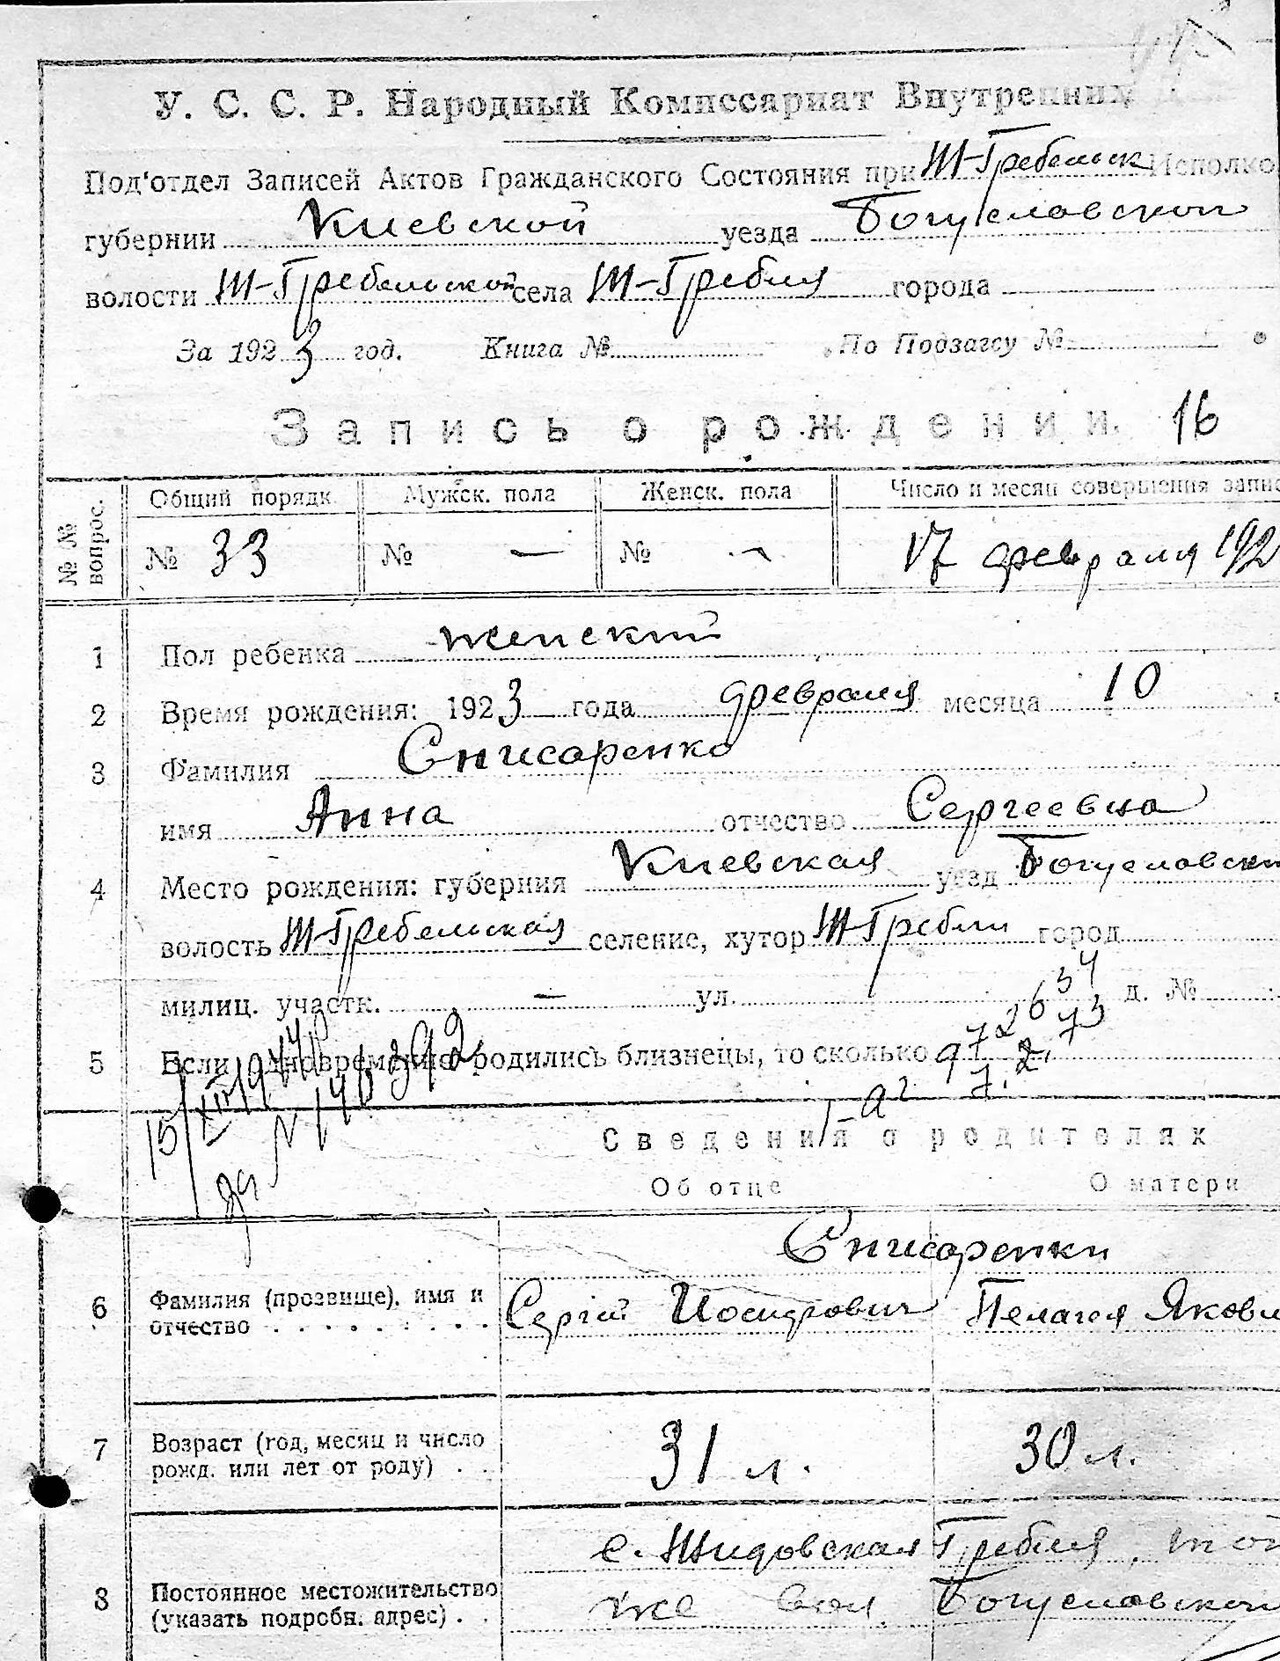 У. С. С. Р. Народный Комиссариат Внутренних
Под'отдел Записей Актов Гражданского Состояния при Ж-Гребельск Исполко
губернии Киевской уезда Богуславской
волости Ж-Гребельской села Ж-Гребля города
За 1923 год. Книга № По Подзагсу №
Запись о рождении. 16
№ № вопрос. Общий порядк. Мужск. пола Женск. пола Число и месяц совершения запис
№ 33 № — № — 17 февраля 192
1 Пол ребенка женский
2 Время рождения: 1923 года февраля месяца 10
3 Фамилия Снисаренко
имя Анна отчество Сергеевна
4 Место рождения: губерния Киевская уезд Богуславски
волость Ж-Гребельская селение, хутор Ж-Гребли город
милиц. участк. — ул. д. №
5 Если одновременно родились близнецы, то сколько
15/XII 1944
N 140392
Сведения о родителях
Об отце О матери
Снисаренки
6 Фамилия (прозвище), имя и отчество Сергій Иосифович Пелагея Яковл
7 Возраст (год, месяц и число рожд. или лет от роду) 31 л. 30 л.
с. Жидовская Гребля, той
8 Постоянное местожительство (указать подробн. адрес) же вол. Богуславской